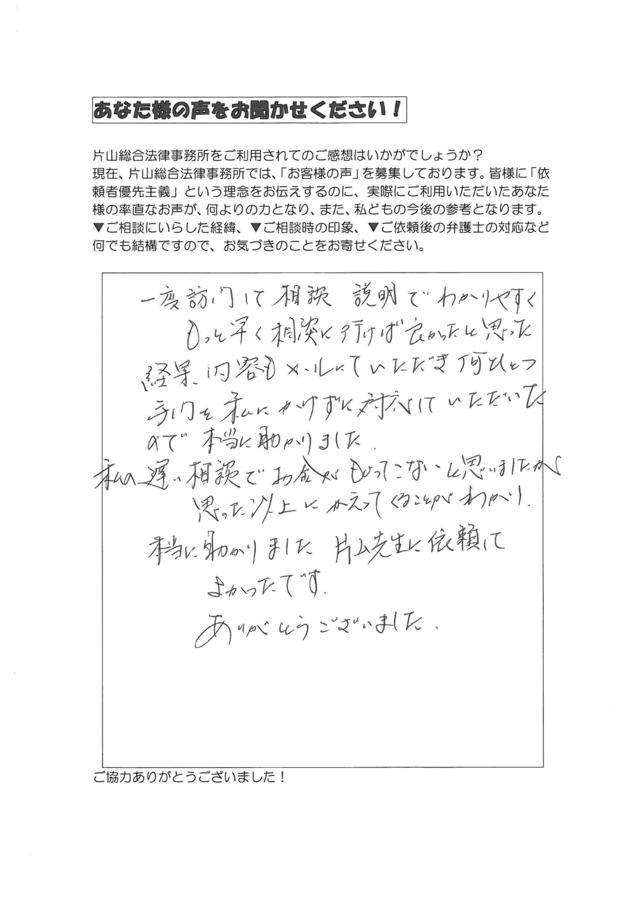 あなた様の声をお聞かせください！
片山総合法律事務所をご利用されてのご感想はいかがでしょうか？
現在、片山総合法律事務所では、「お客様の声」を募集しております。皆様に「依
頼者優先主義」という理念をお伝えするのに、実際にご利用いただいたあなた
様の率直なお声が、何よりの力となり、また、私どもの今後の参考となります。
▼ご相談にいらした経緯、▼ご相談時の印象、▼ご依頼後の弁護士の対応など
何でも結構ですので、お気づきのことをお寄せください。
一度訪門して相談 説明でわかりやすく
もっと早く相談に行けば良かったと思った
経果、内容もメールにていただき何ひとつ
手門を私にかけずに対応していただいた
ので本当に助かりました.
私の遅い相談でお金がもどってこないと思いましたが
思った以上にかえってくることがわかり.
本当に助かりました 片山先生に依頼して
よかったです.
ありがとうございました.
ご協力ありがとうございました！